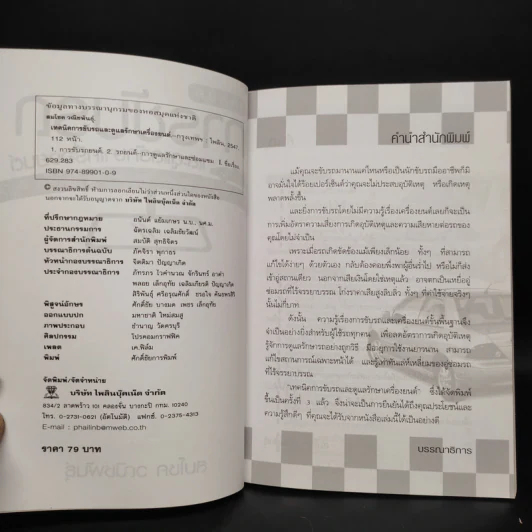 ข้อมูลทางบรรณานุกรมของหอสมุดแห่งชาติ
สมโชค วณิชพันธุ์.
เทคนิคการขับรถและดูแลรักษาเครื่องยนต์.--กรุงเทพฯ : ไพลิน, 2547
112 หน้า.
1. การขับรถยนต์. 2. รถยนต์--การดูแลรักษาและซ่อมแซม. I. ชื่อเรื่อง.
629.283
ISBN 974-89901-0-9
© สงวนลิขสิทธิ์ ห้ามการลอกเลียนไม่ว่าส่วนหนึ่งส่วนใดของหนังสือ
นอกจากจะได้รับอนุญาตจาก บริษัท ไพลินบุ๊คเน็ต จำกัด
ที่ปรึกษากฎหมาย อนันต์ แย้มเกษร น.บ., นศ.ม.
ประธานกรรมการ ฉัตรเฉลิม เฉลิมชัยวัฒน์
ผู้จัดการสำนักพิมพ์ สมบัติ สุทธิจิตร
บรรณาธิการต้นฉบับ ภัคจิรา พุกาธร
หัวหน้ากองบรรณาธิการ จิตติมา ปัญญาเกิด
ประจำกองบรรณาธิการ ภัทรภร ไวคำนวณ จักรินทร์ อาคำ
พลอย เล็กอุทัย เฉลิมเกียรติ ปัญญาเกิด
ศิริพันธุ์ ศรีอรุณศักดิ์
พิสูจน์อักษร ศักดิ์ชัย บายมด เพชร เล็กอุทัย
ออกแบบปก มหาชาติ ใหม่สมสู่
ภาพประกอบ ชำนาญ วัดครบุรี
ศิลปกรรม โปรคอมกราฟฟิค
เพลต เค.ฟิล์ม
พิมพ์ ศักดิ์ชัยการพิมพ์
จัดพิมพ์/จัดจำหน่าย
บริษัท ไพลินบุ๊คเน็ต จำกัด
834/2 ลาดพร้าว 101 คลองจั่น บางกะปิ กทม. 10240
โทร. 0-2731-0621 (อัตโนมัติ) แฟกซ์. 0-2375-4313
E-mail : phailinb@mweb.co.th
ราคา 79 บาท
คำนำสำนักพิมพ์
แม้คุณจะขับรถมานานแค่ไหนหรือเป็นนักขับรถมืออาชีพก็มิ
อาจมั่นใจได้ร้อยเปอร์เซ็นต์ว่าคุณจะไม่ประสบอุบัติเหตุ หรือเกิดเหตุ
พลาดพลั้งขึ้น
และยิ่งการขับรถโดยไม่มีความรู้เรื่องเครื่องยนต์เลยก็จะเป็น
การเพิ่มอัตราความเสี่ยงการเกิดอุบัติเหตุและความเสียหายต่อรถของ
คุณโดยไม่จำเป็น
เพราะเมื่อรถเกิดขัดข้องแม้เพียงเล็กน้อย ทั้งๆ ที่สามารถ
แก้ไขได้ง่ายๆ ด้วยตัวเอง กลับต้องคอยพึ่งพาผู้อื่นร่ำไป หรือไม่ก็ส่ง
เข้าอู่สถานเดียว นอกจากเสียเงินโดยใช่เหตุแล้ว อาจตกเป็นเหยื่ออู่
ซ่อมรถที่ไร้จรรยาบรรณ โก่งราคาเสียสูงลิบลิ่ว ทั้งๆ ที่ค่าใช้จ่ายจริงๆ
นั้นไม่กี่บาท
ดังนั้น ความรู้เรื่องการขับรถและเครื่องยนต์ขั้นพื้นฐานจึง
จำเป็นอย่างยิ่งสำหรับผู้ใช้รถทุกคน เพื่อลดอัตราการเกิดอุบัติเหตุ
รู้จักการดูแลรักษารถอย่างถูกวิธี มีอายุการใช้งานยาวนาน สามารถ
แก้ไขสถานการณ์เฉพาะหน้าได้ และรู้เท่าทันเล่ห์เหลี่ยมของอู่ซ่อมรถ
ที่ไร้จรรยาบรรณ
"เทคนิคการขับรถและดูแลรักษาเครื่องยนต์" ซึ่งได้จัดพิมพ์
ขึ้นเป็นครั้งที่ 3 แล้ว จึงน่าจะเป็นการยืนยันได้ถึงคุณประโยชน์และ
ความรู้สึกดีๆ ที่คุณจะได้รับจากหนังสือเล่มนี้ได้เป็นอย่างดี
บรรณาธิการ